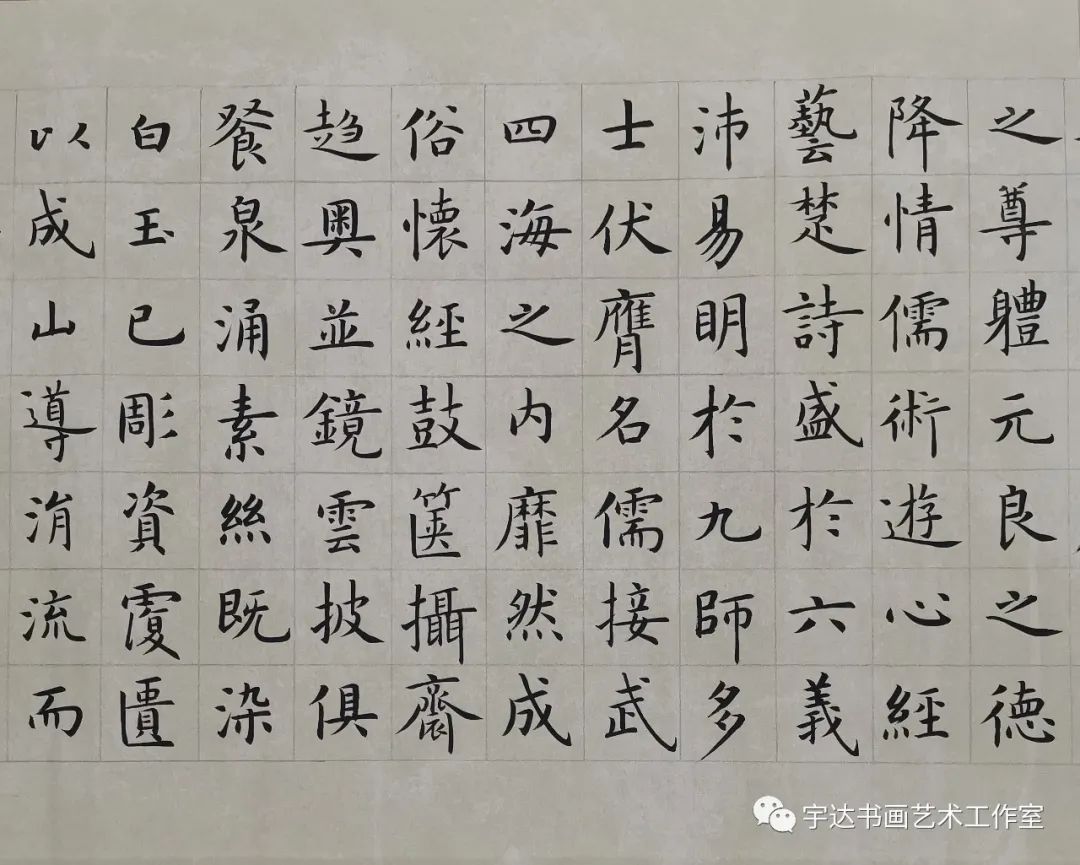 之尊體元良之德
降情儒術遊心經
藝楚詩盛於六義
沛易明於九師多
士伏膺名儒接武
四海之内靡然成
俗懷經鼓篋攝齋
趋奥並鏡雲披俱
餐泉涌素絲既染
白玉已彫資覆匱
以成山導涓流而
宇达书画艺术工作室